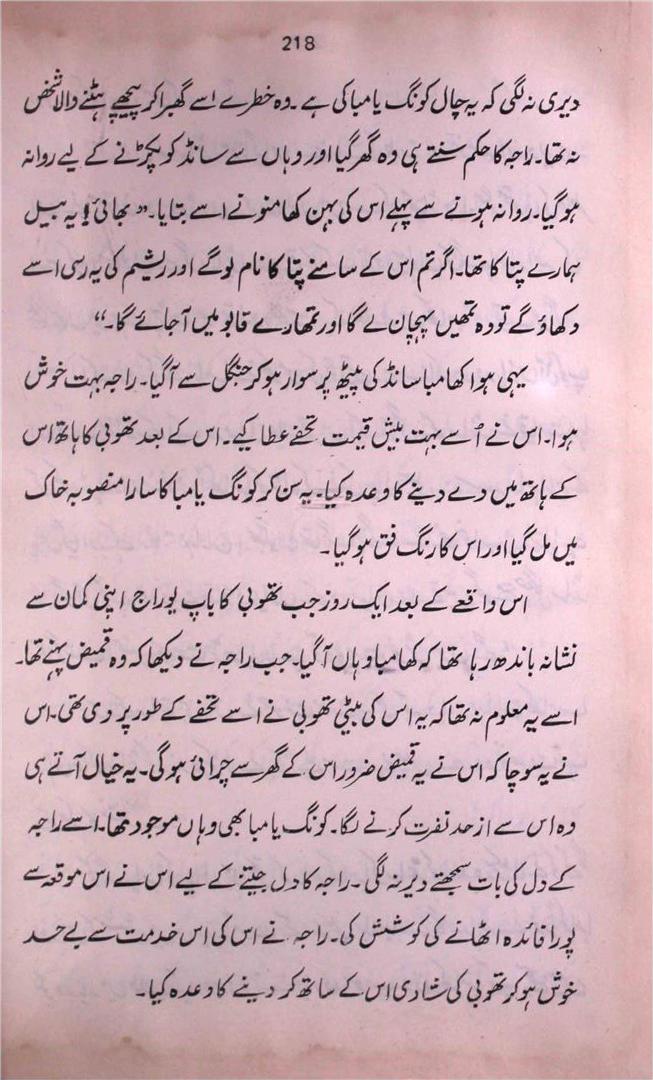 218
دیری نہ لگی کہ یہ چال کونگ یامبا کی ہے ۔ وہ خطرے اسے گھبرا کر پیچھے ہٹنے والا شخص
نہ تھا۔ راجہ کا حکم سنتے ہی وہ گھر گیا اور وہاں سے سانڈ کو پکڑنے کے لیے روانہ
ہو گیا۔ روانہ ہونے سے پہلے اس کی بہن کھامنو نے اسے بتایا۔ “ بھائی! یہ بیل
ہمارے پتا کا تھا۔ اگر تم اس کے سامنے پتا کا نام لوگے اور ریشم کی یہ رسی اسے
دکھاؤ گے تو وہ تمھیں پہچان لے گا اور تمھارے قابو میں آجائے گا۔“
یہی ہوا کھامبا سانڈ کی پیٹھ پر سوار ہو کر جنگل سے آگیا۔ راجہ بہت خوش
ہوا۔ اس نے اُسے بہت بیش قیمت تحفے عطا کیے۔ اس کے بعد تھوبی کا ہاتھ اس
کے ہاتھ میں دے دینے کا وعدہ کیا۔ یہ سن کر کونگ یامبا کا سارا منصوبہ خاک
میں مل گیا اور اس کا رنگ فق ہو گیا۔
اس واقعے کے بعد ایک روز جب تھوبی کا باپ یوراج اپنی کمان سے
نشانہ باندھ رہا تھا کہ کھامبا وہاں آگیا۔ جب راجہ نے دیکھا کہ وہ قمیض پہنے تھا۔
اسے یہ معلوم نہ تھا کہ یہ اس کی بیٹی تھوبی نے اسے تحفے کے طور پر دی تھی۔ اس
نے یہ سوچا کہ اس نے یہ قمیض ضرور اس کے گھر سے چرائی ہوگی۔ یہ خیال آتے ہی
وہ اس سے از حد نفرت کرنے لگا۔ کونگ یامبا بھی وہاں موجود تھا۔ اسے راجہ
کے دل کی بات سمجھتے دیر نہ لگی ۔ راجہ کا دل جیتنے کے لیے اس نے اس موقعہ سے
پورا فائدہ اٹھانے کی کوشش کی۔ راجہ نے اس کی اس خدمت سے بے حد
خوش ہو کر تھوبی کی شادی اس کے ساتھ کر دینے کا وعدہ کیا۔